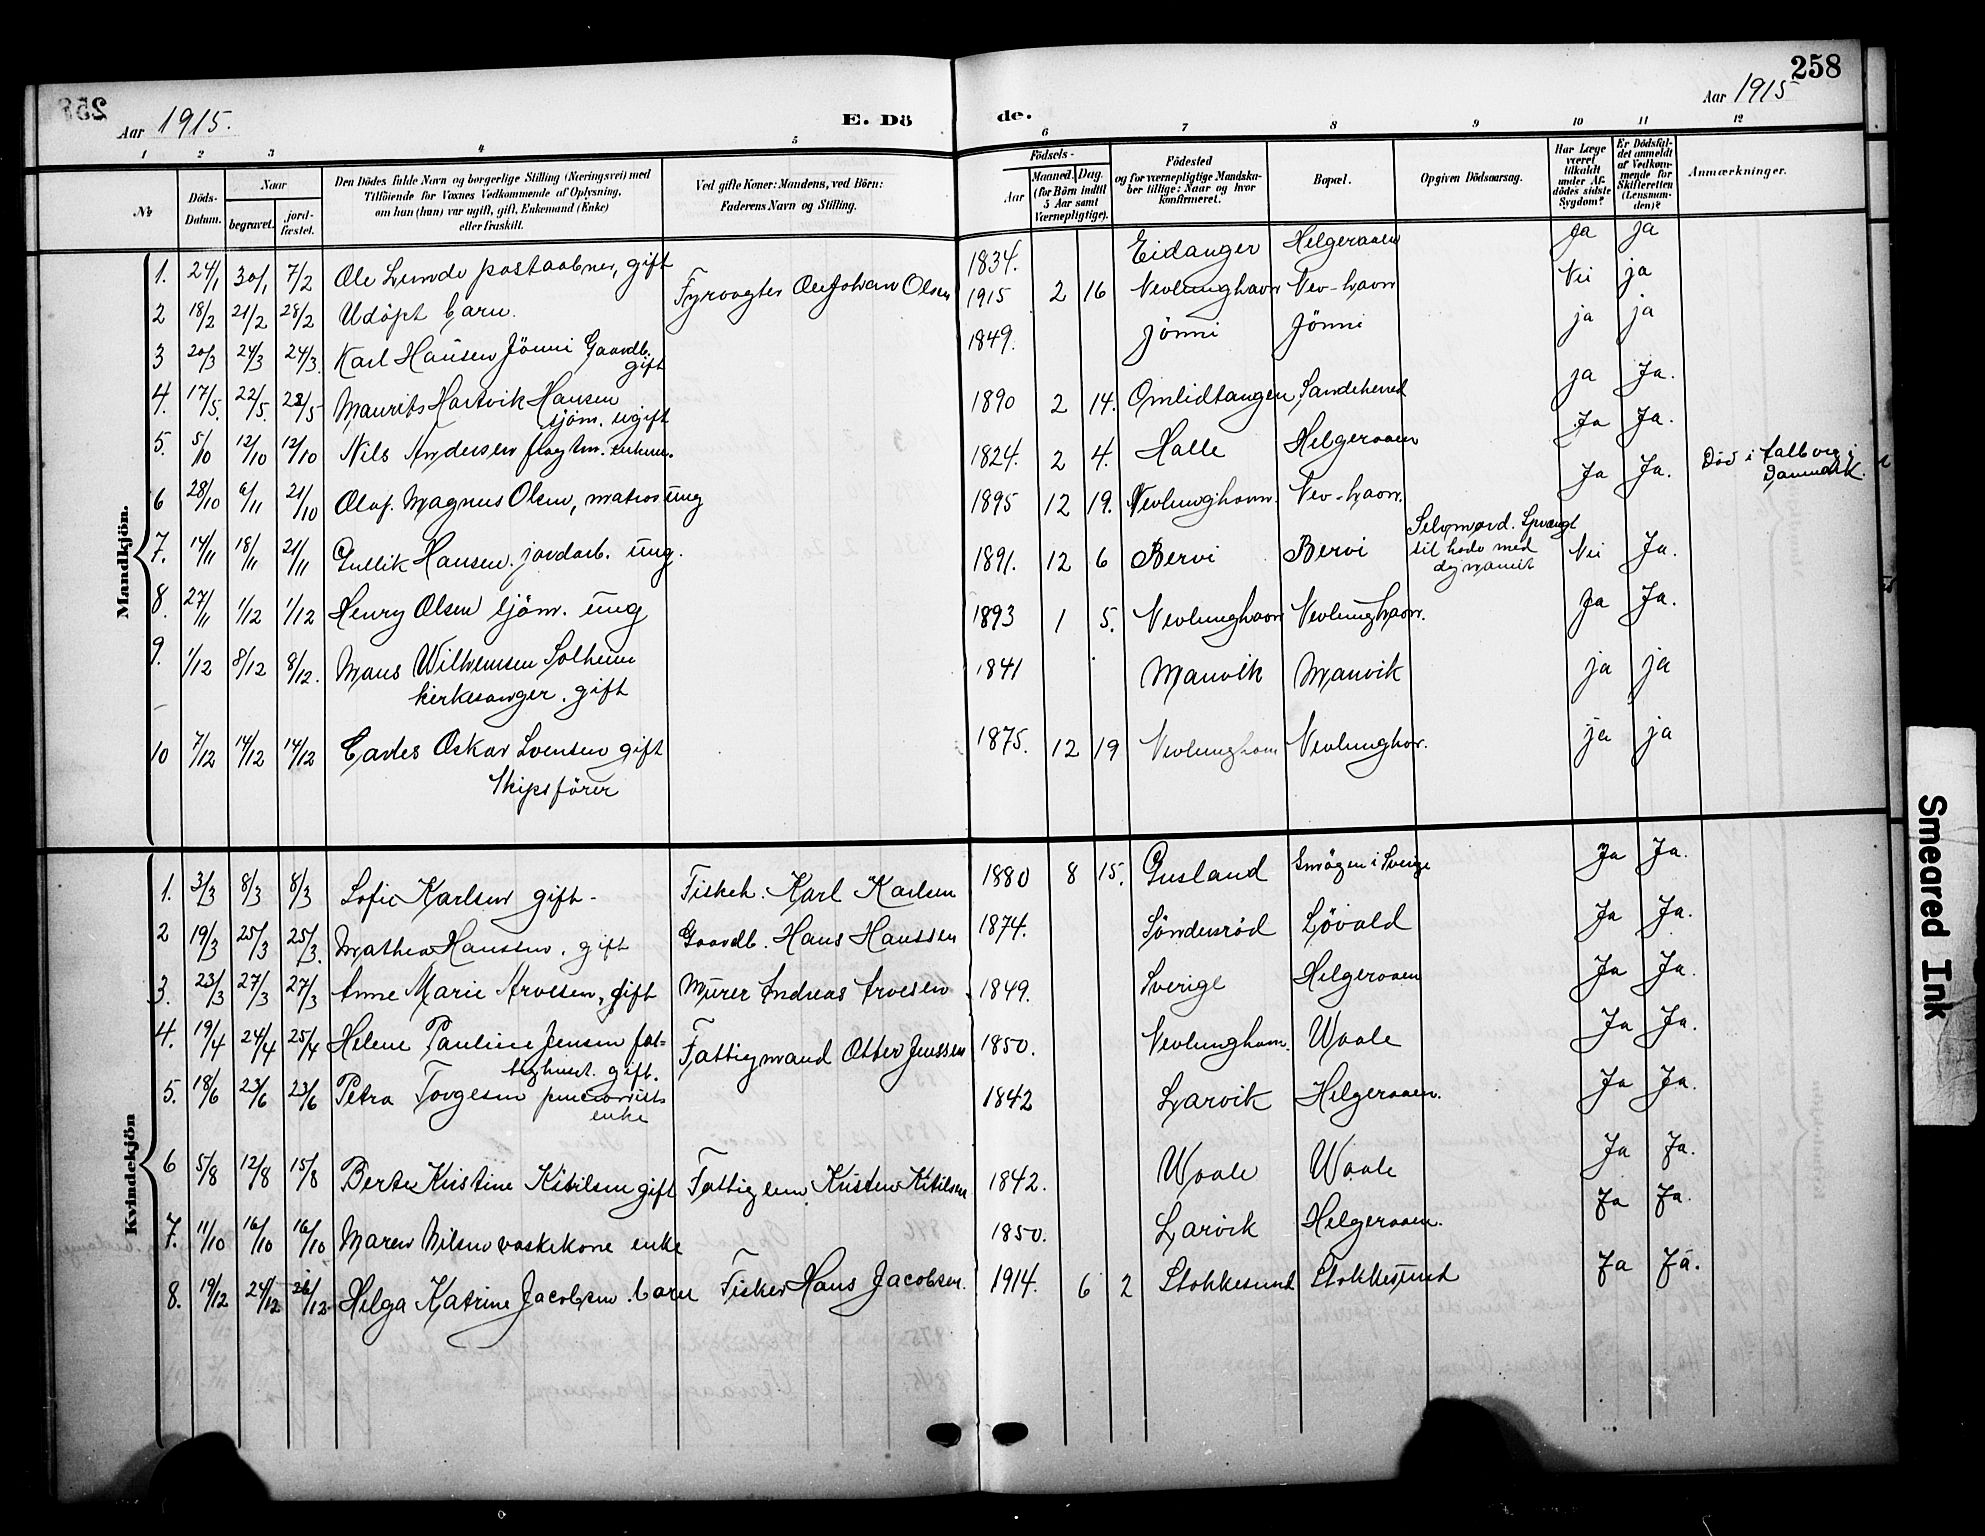 258
Aar 1915.
E. Dö
de.
Aar 1915
1 2 3 4 5 6 7 8 9 10 11 12
№
Döds-Datum.
Naar
begravet.
jord-fæstet.
Den Dödes fulde Navn og borgerlige Stilling (Næringsvei) med
Tilföiende for Voxnes Vedkommende af Oplysning,
om han (hun) var ugift, gift, Enkemand (Enke)
eller fraskilt.
Ved gifte Koner: Mandens, ved Börn:
Faderens Navn og Stilling.
Födsels-
Aar
Maaned. Dag.
(for Börn indtil
5 Aar samt
Værnepligtige).
Födested
og for værnepligtige Mandska-
ber tillige: Naar og hvor
konfirmeret.
Bopæl.
Opgiven Dödsaarsag.
Har Læge
været
tilkaldt
under Af-
dödes sidste
Sygdom?
Er Dödsfal-
det anmeldt
af Vedkom-
mende for
Skifteretten
(Lensman-
den)?
Anmærkninger.
Mandkjön.
1. 24/1 30/1 7/2 Ole Lunde postaabner, gift 1834. Eidanger Helgeraaen Ja ja
2 18/2 21/2 28/2 Udöpt barn. Fyrvogter Ole Johan Olsen 1915 2 16 Nevlunghavn Nev-havn Nei ja
3 20/3 24/3 24/3. Karl Hansen Jönni Gaardb. gift 1849. Jönni Jönni ja ja
4. 17/5. 22/5. 28/5 Maurits Hartvik Hansen
sjöm. ugift 1890 2 14. Omlidtangen Sandeherred ja Ja.
5. 5/10 12/10 12/10 Nils Andersen enkem. 1824. 2 4. Halle Helgeraaen Ja Ja.
6 28/10 6/11 21/10 Olaf Magnus Olsen, matros ung 1895 12 19. Nevlunghavn. Nev-havn. Ja Ja. Död i i
Danmark.
7. 14/11 18/11 21/11 Gullik Hansen. jordarb. ung. 1891. 12 6 Bervi Bervi Selvmord. Sprængt
til döde med
dynamit Nei Ja.
8. 27/11 1/12 1/12 Henry Olsen sjöm. ung 1893 1 5. Nevlunghavn Nevlunghavn. Ja Ja.
9. 1/12 8/12 8/12. Mans Wilhemsen Solheim
kirkesanger. gift 1841 Manvik Manvik ja ja
10 7/12 14/12 14/12 Carles Oskar Svensen gift
Skipsförer 1875. 12 19 Nevlunghavn Nevlunghav. ja ja
Kvindekjön
1. 3/3 8/3 8/3 Sofie Karlsen gift- Fiskeh. Karl Karlsen 1880 8 15. Gusland Smögen i Sverige Ja Ja.
2 19/3 25/3 25/3. Mathea Hanssen. gift Gaardb. Hans Hanssen 1874. Sönderröd Lövald Ja Ja.
3. 23/3 27/3 27/3 Anne Marie Arvesen, gift Murer Andreas Arvesen 1849. Sverige Helgeraaen Ja Ja.
4. 19/4 24/4 25/4 Helene Pauline Jensen fat=
tighust. gift. Fattigmand Otter Jenssen 1850. Nevlunghavn. Waale Ja Ja.
5. 18/6 23/6 23/6 Petra Torgesen
enke 1842 Larvik Helgeraaen. Ja Ja.
6 5/8 12/8 15/8 Berte Kristine Kittilsen gift Fattiglem Kristen Kittilsen 1842. Waale Waale Ja Ja.
7. 11/10 16/10 16/10 Maren Nilsen vaskekone enke 1850. Larvik Helgeraaen. Ja Ja.
8. 19/12 24/12 26/12. Helga Katrine Jacobsen. barn Fisker Hans Jacobsen. 1914. 6 2 Stokkesund Stokkesund Ja Ja.
Smeared Ink